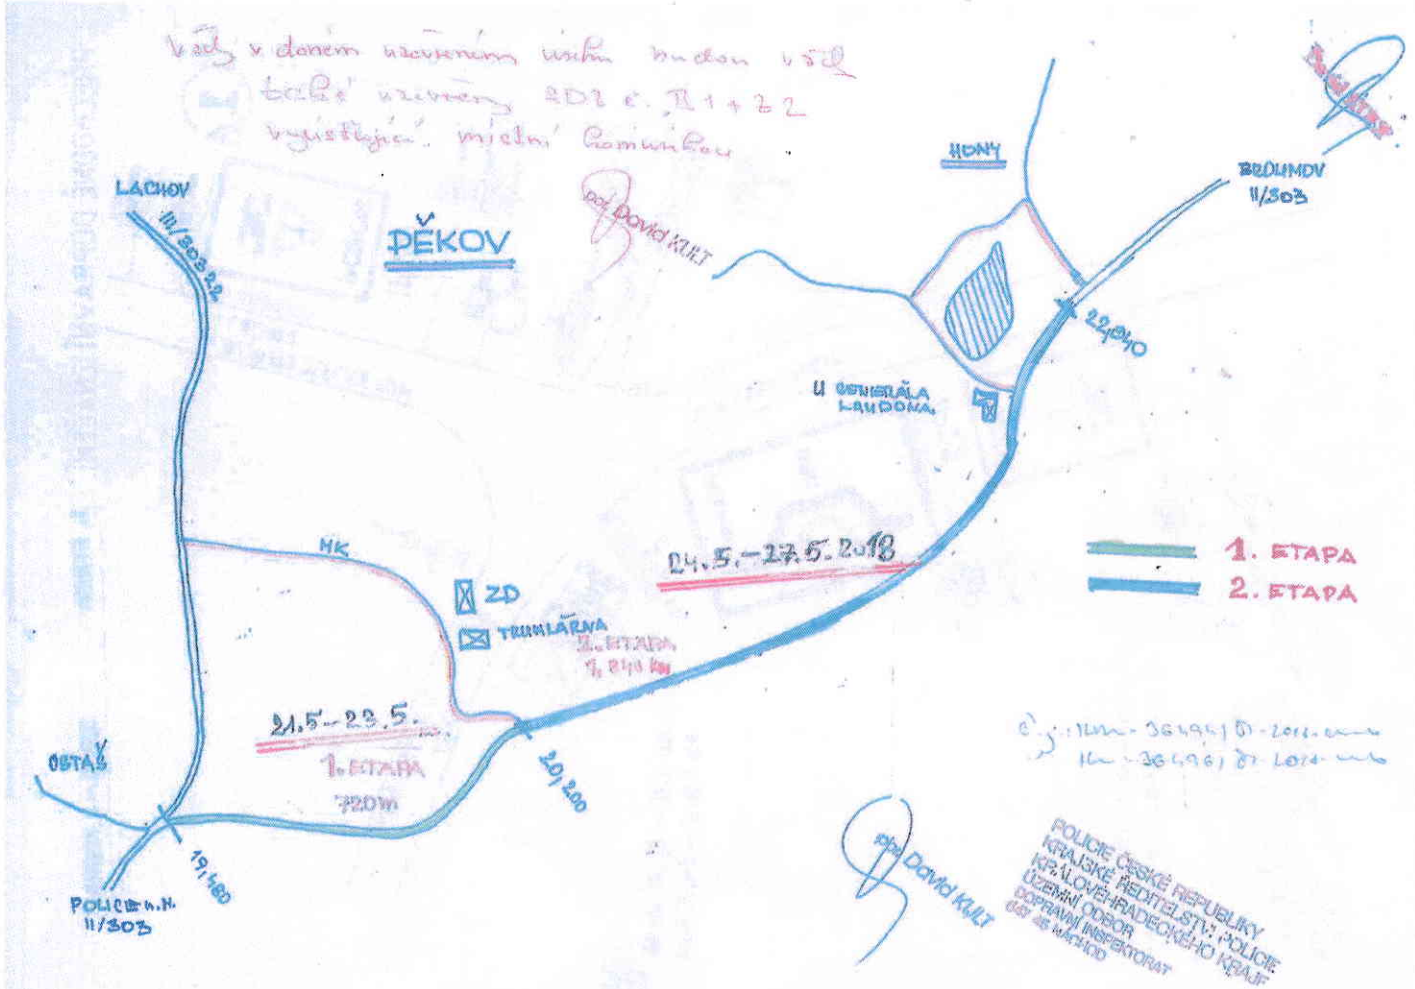 Vždy v daném uzavřeném úseku budou vždy
také uzavřeny
vyúsťující místní komunikace
LACHOV
III/30322
PĚKOV
ppř David KULT
HONY
BROUMOV
II/303
22,040
U GENERÁLA
LAUDONA.
MK
ZD
TRUHLÁRNA
24.5.-27.5.2018
2. ETAPA
1,840 km
1. ETAPA
2. ETAPA
21.5-23.5.
1. ETAPA
720m
20,200
OSTAŠ
19,480
POLICE n.M.
II/303
David KULT
POLICIE ČESKÉ REPUBLIKY
KRAJSKÉ ŘEDITELSTVÍ POLICIE
KRÁLOVÉHRADECKÉHO KRAJE
ÚZEMNÍ ODBOR
DOPRAVNÍ INSPEKTORÁT
547 45 NÁCHOD